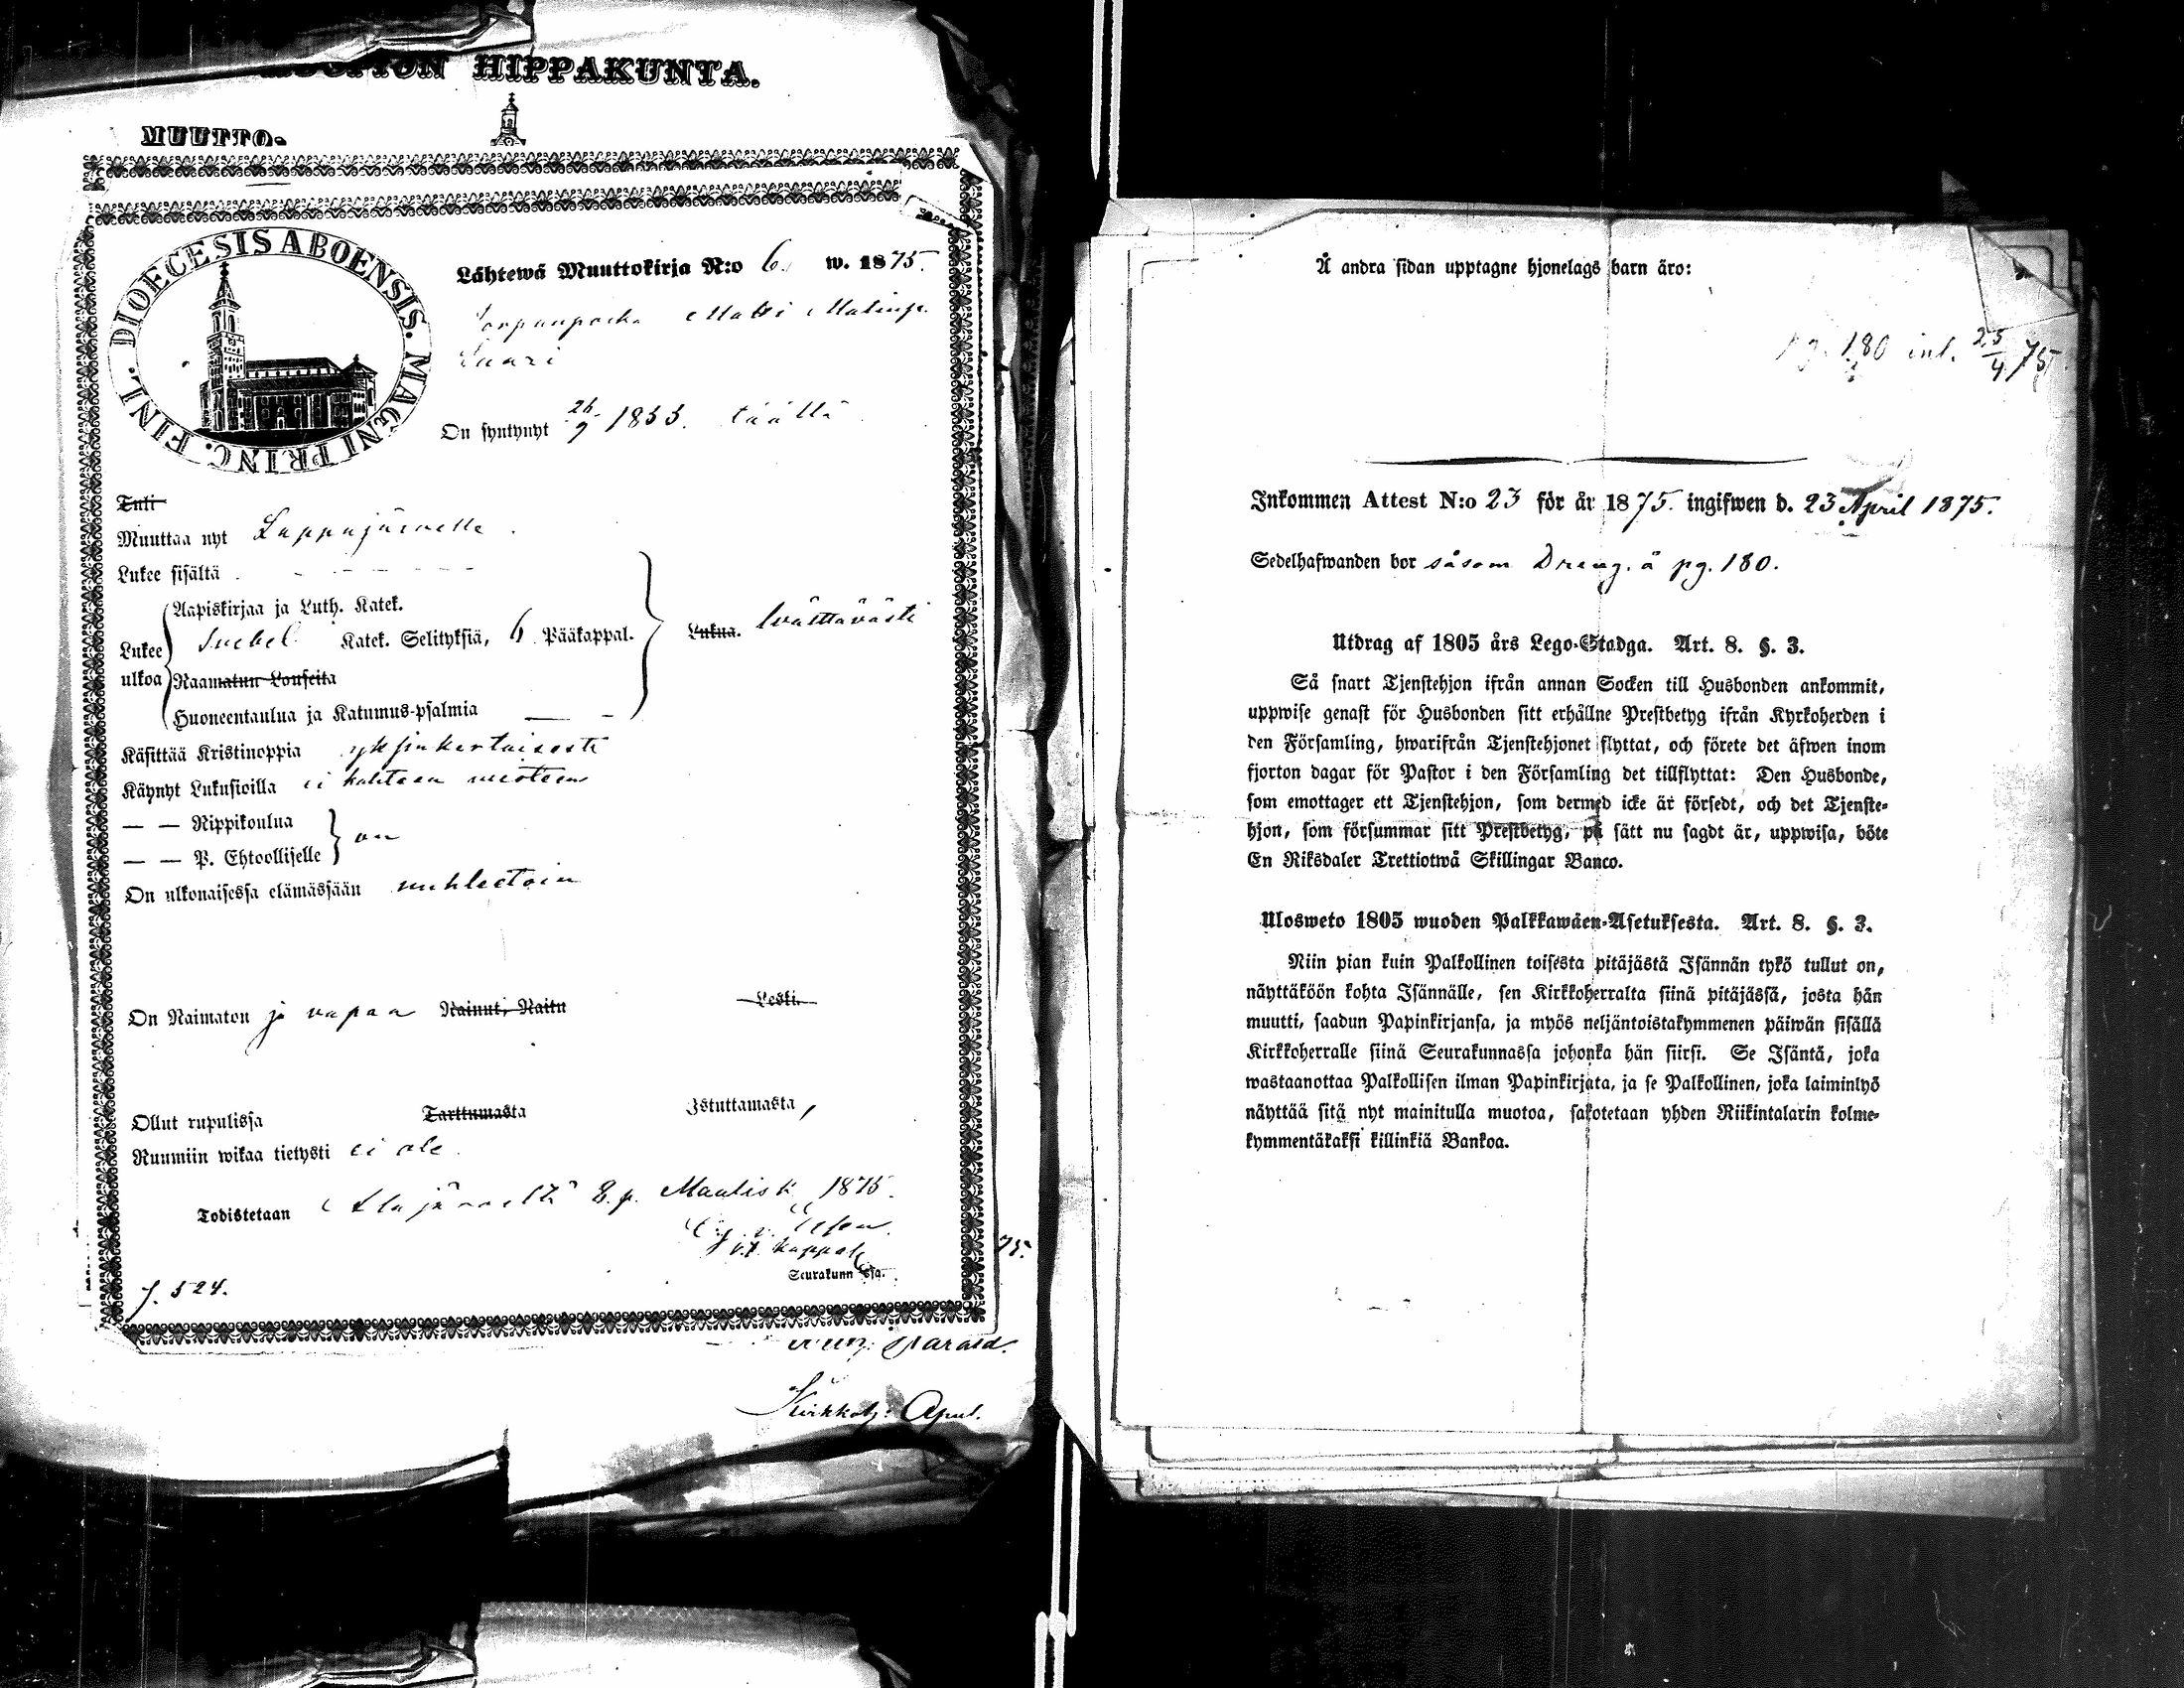 HIPPAKUNTA.
MUUTTO-
DIOECESIS ABOENSIS. MAGNI PRINC. FINL.
Lähtewä Muuttokirja N:o 6. w. 1875.
Matti Matinp.
Saari
On syntynyt 26/9 1853. täällä
Tuli
Muuttaa nyt Lappajärvelle.
Lukee sisältä
Aapiskirjaa ja Luth. Katek.
Lukee ulkoa Katek. Selityksiä, 6 Pääkappal. Lukua. Wälttävästi
Raamatun Lauseita
Huoneentaulua ja Katumus-psalmia
Käsittää Kristinoppia yksinkertaisesti
Käynyt Lukusioilla ei kahteen vuoteen
— — Rippikoulua
— — P. Ehtoollisella on
On ulkonaisessa elämässään nuhteetoin
On Naimaton ja vapaa Nainut, Naitu Leski.
Ollut rupulissa Tarttumasta Istuttamasta,
Ruumiin wikaa tietysti ei ole.
Todistetaan Alajärveltä 8. p. Maalisk. 1875.
v.t. kappal.
Seurakunnassa.
75.
f. 524.
Kirkkoh: Apul.
Å andra sidan upptagne hjonelags barn äro:
pg. 180 inl. 25/4 75
Inkommen Attest N:o 23 för år 1875. ingifwen d. 23 April 1875.
Sedelhafwanden bor såsom Dreng. å pg. 180.
Utdrag af 1805 års Lego-Stadga. Art. 8. §. 3.
Så snart Tjenstehjon ifrån annan Socken till Husbonden ankommit,
uppwise genast för Husbonden sitt erhållne Prestbetyg ifrån Kyrkoherden i
den Församling, hwarifrån Tjenstehjonet flyttat, och förete det äfwen inom
fjorton dagar för Pastor i den Församling det tillflyttat: Den Husbonde,
som emottager ett Tjenstehjon, som dermed icke är försedt, och det Tjenste-
hjon, som försummar sitt Prestbetyg, på sätt nu sagdt är, uppwisa, böte
En Riksdaler Trettiotwå Skillingar Banco.
Ulosweto 1805 wuoden Palkkawäen-Asetuksesta. Art. 8. §. 3.
Niin pian kuin Palkollinen toisesta pitäjästä Isännän tykö tullut on,
näyttäköön kohta Isännälle, sen Kirkkoherralta siinä pitäjässä, josta hän
muutti, saadun Papinkirjansa, ja myös neljäntoistakymmenen päiwän sisällä
Kirkkoherralle siinä Seurakunnassa johonka hän siirsi. Se Isäntä, joka
wastaanottaa Palkollisen ilman Papinkirjata, ja se Palkollinen, joka laiminlyö
näyttää sitä nyt mainitulla muotoa, sakotetaan yhden Riikintalarin kolme-
kymmentäkaksi killinkiä Bankoa.